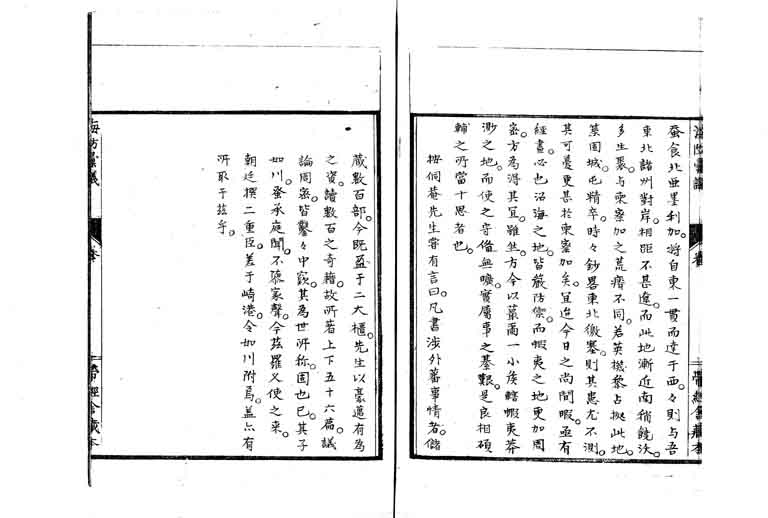 蚕食北亜墨利加。将自東一貫而達于西。々則与吾
東北諸州対岸。相距不甚遼。而此地漸近南稍饒沃。
多生聚。与東察加之荒瘠不同。若英機黎占拠此地。
築固城。屯精卒。時々鈔畧東北徼塞。則其患尤不測。
其可憂更甚於東察加矣。宜迨今日之尚間暇。亟有
経画。必也沿海之地。皆厳防禦。而蝦夷之地更加周
密。方為得其宜。雖然。方今以蕞爾一小侯。轄蝦夷莽
渺之地。而使之守備無曠。実属事之綦艱。是良相碩
輔之所当十思者也。
按侗菴先生嘗有言曰。凡書渉外蕃事情者。儲
蔵数百部。今既盈于二大櫃。先生以豪邁有為
之資。読数百之奇籍。故所著上下五十六篇。議
論周密。皆鑿々中窾。其為世所称。固也已。其子
如川蚤承庭聞。不墜家声。今茲羅叉使之来。
朝廷撰二重臣。差于崎港。令如川附焉。蓋亦有
所取于茲乎。
海防彙議
巻
帯経舎蔵本